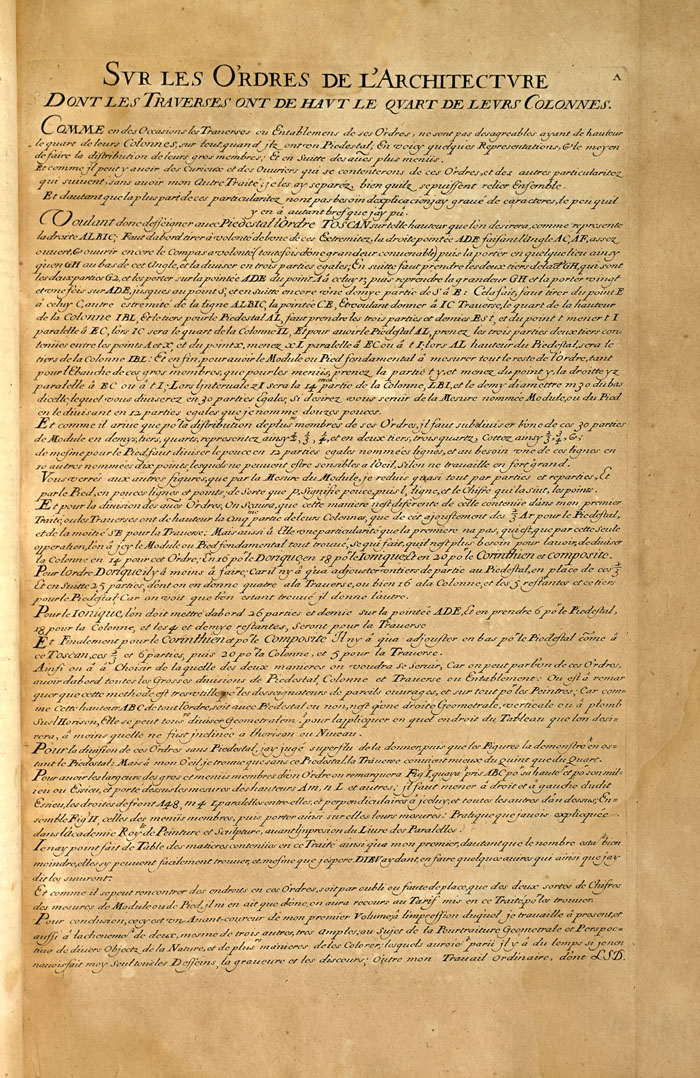 SVR LES O'RDRES DE L'ARCHITECTVRE
A
DONT LES TRAVERSES ONT DE HAVT LE QVART DE LEVRS COLONNES.
COMME en des Occasions les Traverses ou Entablemens de ses Ordres, ne sont pas desagreables ayant de hauteur
le quart de leurs Colonnes, sur tout quand jlz ont vn Piedestal, En voicy quelques Representations, & le moyen
de faire la distribution de leurs gros membres; Et en Suitte des aues plus menus.
Et comme jl peut y avoir des Curieux et des Ouvriers qui se contenterons de ces Ordres, et des autres particularitez
qui suivent, sans avoir mon Autre Traité; je les ay separez, bien quilz se puissent relier Ensemble.
Et d'autant que la plus part de ces particularitez nont pas besoin d'explicaon, jay gravé de caracteres, le peu quil
y en à autant bref que jay pû.
Voulant donc desseigner avec Piedestal l'Ordre TOSCAN sur telle hauteur que lon desirera, comme represente
la droite ALBIC, Faut dabord tirer à volonté de lune de ces Extremitez, la droite pointée ADE faisant l'angle AC, AF, assez
ouvert, & ouvrir encore le Compas a volonté (toutesfois d'une grandeur convenable) puis la porter en quelque lieu ainsy
quen GH au bas de cet Angle, et la diviser en trois parties egales; En suitte faut prendre les deux tiers de lad. GH, qui sont
les deux parties G2, et les porter sur la pointée ADE du point A à celuy r, puis reprendre la grandeur GH et la porter vingt
et vne fois sur ADE, jusques au point S, et en suitte encore vne demye partie de S à E: Cela fait, faut tirer du point E
à celuy C, autre extremité de la ligne ALBIC, la pointée CE, Et voulant donner à IC Traverse, le quart de la hauteur
de la Colonne IBL, Et le tiers pour le Piedestal AL, faut prendre les trois parties et demie Est, et du point t mener t I
paralelle à EC, lors IC sera le quart de la Colonne IL, Et pour avoir le Piedestal AL, prenez les trois parties deux tiers con-
tenües entre les points A et x et du point x, menez xL paralelle à EC ou à t I; lors AL hauteur du Piedestal, sera le
tiers de la Colonne IBL: Et en fin, pour avoir le Module ou Pied fondamental à mesurer tout le reste de l'ordre, tant
pour l'Ebauche de ces gros membres, que pour les menus, prenez la partie t y, et menez du point y, la droitte yz
paralelle à EC ou à t I; Lors l'jntervale z I sera la 14me partie de la Colonne, LBI, et le demy diamettre m 30 du bas
dicelle; lequel vous diviserez en 30 parties Egales, Si desirez vous servir de la Mesure nommée Module, ou du Pied
en le divisant en 12 parties egales que je nomme douze pouces.
Et comme il arive que po.r la distribution de plus.rs membres de ses Ordres, jl faut subdiviser l'vne de ces 30 parties
de Module en demys, tiers, quarts, representez ainsy 1/2, 1/3, 1/4, et en deux tiers, trois quarts, Cottez ainsy 2/3, 3/4, &c;
de mesme pour le Pied, faut diviser le pouce en 12 parties egales nommées lignes, et au besoin vne de ces lignes en
10 autres nommées dix points lesquels ne peuvent estre sensibles a l'oeil, Si lon ne travaille en fort grand.
Vous verrés aux autres figures, que par la Mesure du Module, je reduis quasi tout par parties et reparties, Et
par le Pied, en pouces, lignes et points; de Sorte que p. Signifie pouce, puis l, ligne, et le Chifre qui la Suit, les points.
Et pour la division des aues Ordres, On Scaura, que cette maniere n'est diferente de celle contenüe dans mon premier
Traité; ou les Traverses ont de hauteur la Cinq.e partie de leurs Colonnes, que de cet ajoustement des 2/3 Ar pour le Piedestal,
et de la moitié SE pour la Traverse: Mais aussi à Elle vne particularité que la premiere na pas, qui est que par cette seule
operation, lon à jcy le Module ou Pied fondamental tout trouvé, Se qui fait, quil n'est plus besoin pour l'avoir, de diviser
la Colonne en 14 pour cet Ordre; En 16 po.r le Dorique, en 18 po.r le Ionique, Et en 20 po.r le Corinthien et composite.
Pour l'ordre Dorique il y à moins à faire; Car il n'y à qua adjouster vn tiers de partie au Piedestal, en place de ces 2/3
Et en Suitte 25 parties, dont on en donne quatre a la Traverse, ou bien 16 a la Colonne, et les 5 restantes et ce tiers
pour le Piedestal; Car on voit que l'en estant trouvé jl donne l'autre.
Pour le Ionique, lon doit mettre dabord 26 parties et demie sur la pointée ADE, Et en prendre 6 po.r le Piedestal,
18 pour la Colonne, et les 4 et demye restantes, Seront pour la Traverse
Et Finalement pour le Corinthien et po.r le Composite Il n'y à qua adjouster en bas po.r le Piedestal cõme à
ce Toscan, ces 2/3 et 6 parties, puis 20 po.r la Colonne, et 5 pour la Traverse.
Ainsi on à à Choisir de laquelle des deux manieres on voudra se servir, Car on peut par l'vn de ces Ordres,
avoir dabord toutes les Grosses divisions de Piedestal, Colonne et Traverse ou Entablement: Ou est à remar
quer que cette methode, est tres vtille po.r les desseignateurs de pareils ouvrages, et sur tout po.r les Peintres; Car com-
me Cette hauteur ABC de tout l'ordre, soit avec Piedestal ou non, nest qu'vne droite Geometrale, verticale ou à plomb
Sus l'Horison, Elle se peut tous.rs diviser Geometralem.t pour l'apliquer en quel endroit du Tableau que lon desi-
rera, à moins quelle ne fust inclinée a l'horison ou Niveau.
Pour la division de ces Ordres sans Piedestal, jay jugé superflu de la donner, puis que les Figures la demonstre.nt en os-
tant le Piedestal: Mais à mon O'eil, je trouve que sans ce Piedestal, la Traverse convient mieux du quint que du quart.
Pour avoir les largeurs des gros et menus membres d'vn Ordre on remarquera Fig. I. quayt pris ABC po.r sa haut.r et po.r son mil-
ieu ou Essieu, et porté dessus les mesures des hauteurs A m, n L et autres; jl faut mener à droit et à gauche dudit
Essieu, les droites de front A 48, m 4 L paralelles entre-elles, et perpendiculaires à jceluy, et toutes les autres d'au dessus; En-
semble Fig. II, celles des menus membres, puis porter ainsi sur elles leurs mesures: Pratique que javois expliquée
dans l'Academie Roy.le de Peinture et Sculpture, avant l'impresion du Livre des Paralelles.
Ie n'ay point fait de Table des matieres contenües en ce Traité ainsi qua mon premier, dautant que le nombre esta.t bien
moindre, elles sy peuvent facilement trouver, et mesme que jespere DIEV aydant, en faire quelques au.res qui ainsi que jay
dit les suivront:
Et comme il se peut rencontrer des endroits en ces Ordres, soit par oubli ou faute de place, que des deux sortes de Chifres
des mesures de Module ou de Pied, jl n'y en ait que d'une, on aura recours au Tarif mis en ce Traité, po.r les trouver.
Pour conclusion, cecy est vn Avant-coureur de mon premier Volume, à l'impression duquel je travaille à present, et
aussi à lachevem.t de deux, mesme de trois autres, tres amples; au Sujet de la Pourtraiture Geometrale et Perspec-
tive de divers Objects, de la Nature, et de plus.rs manieres de les Colorer; lesquels auroie.t parû jl y à du temps si je n'en
n'avois fait moy Seul tous les Desseins, la graveure et les discours; Outre mon Travail Ordinaire, dont L.S.D.